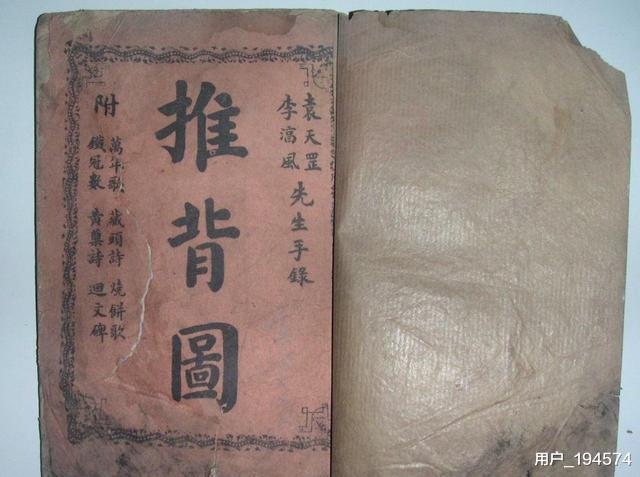 袁天罡
李湻風
先生手錄
推背圖
附
萬年歌 藏頭詩 燒餅歌
鐵冠數 黃巢詩 迴文碑
用户_194574